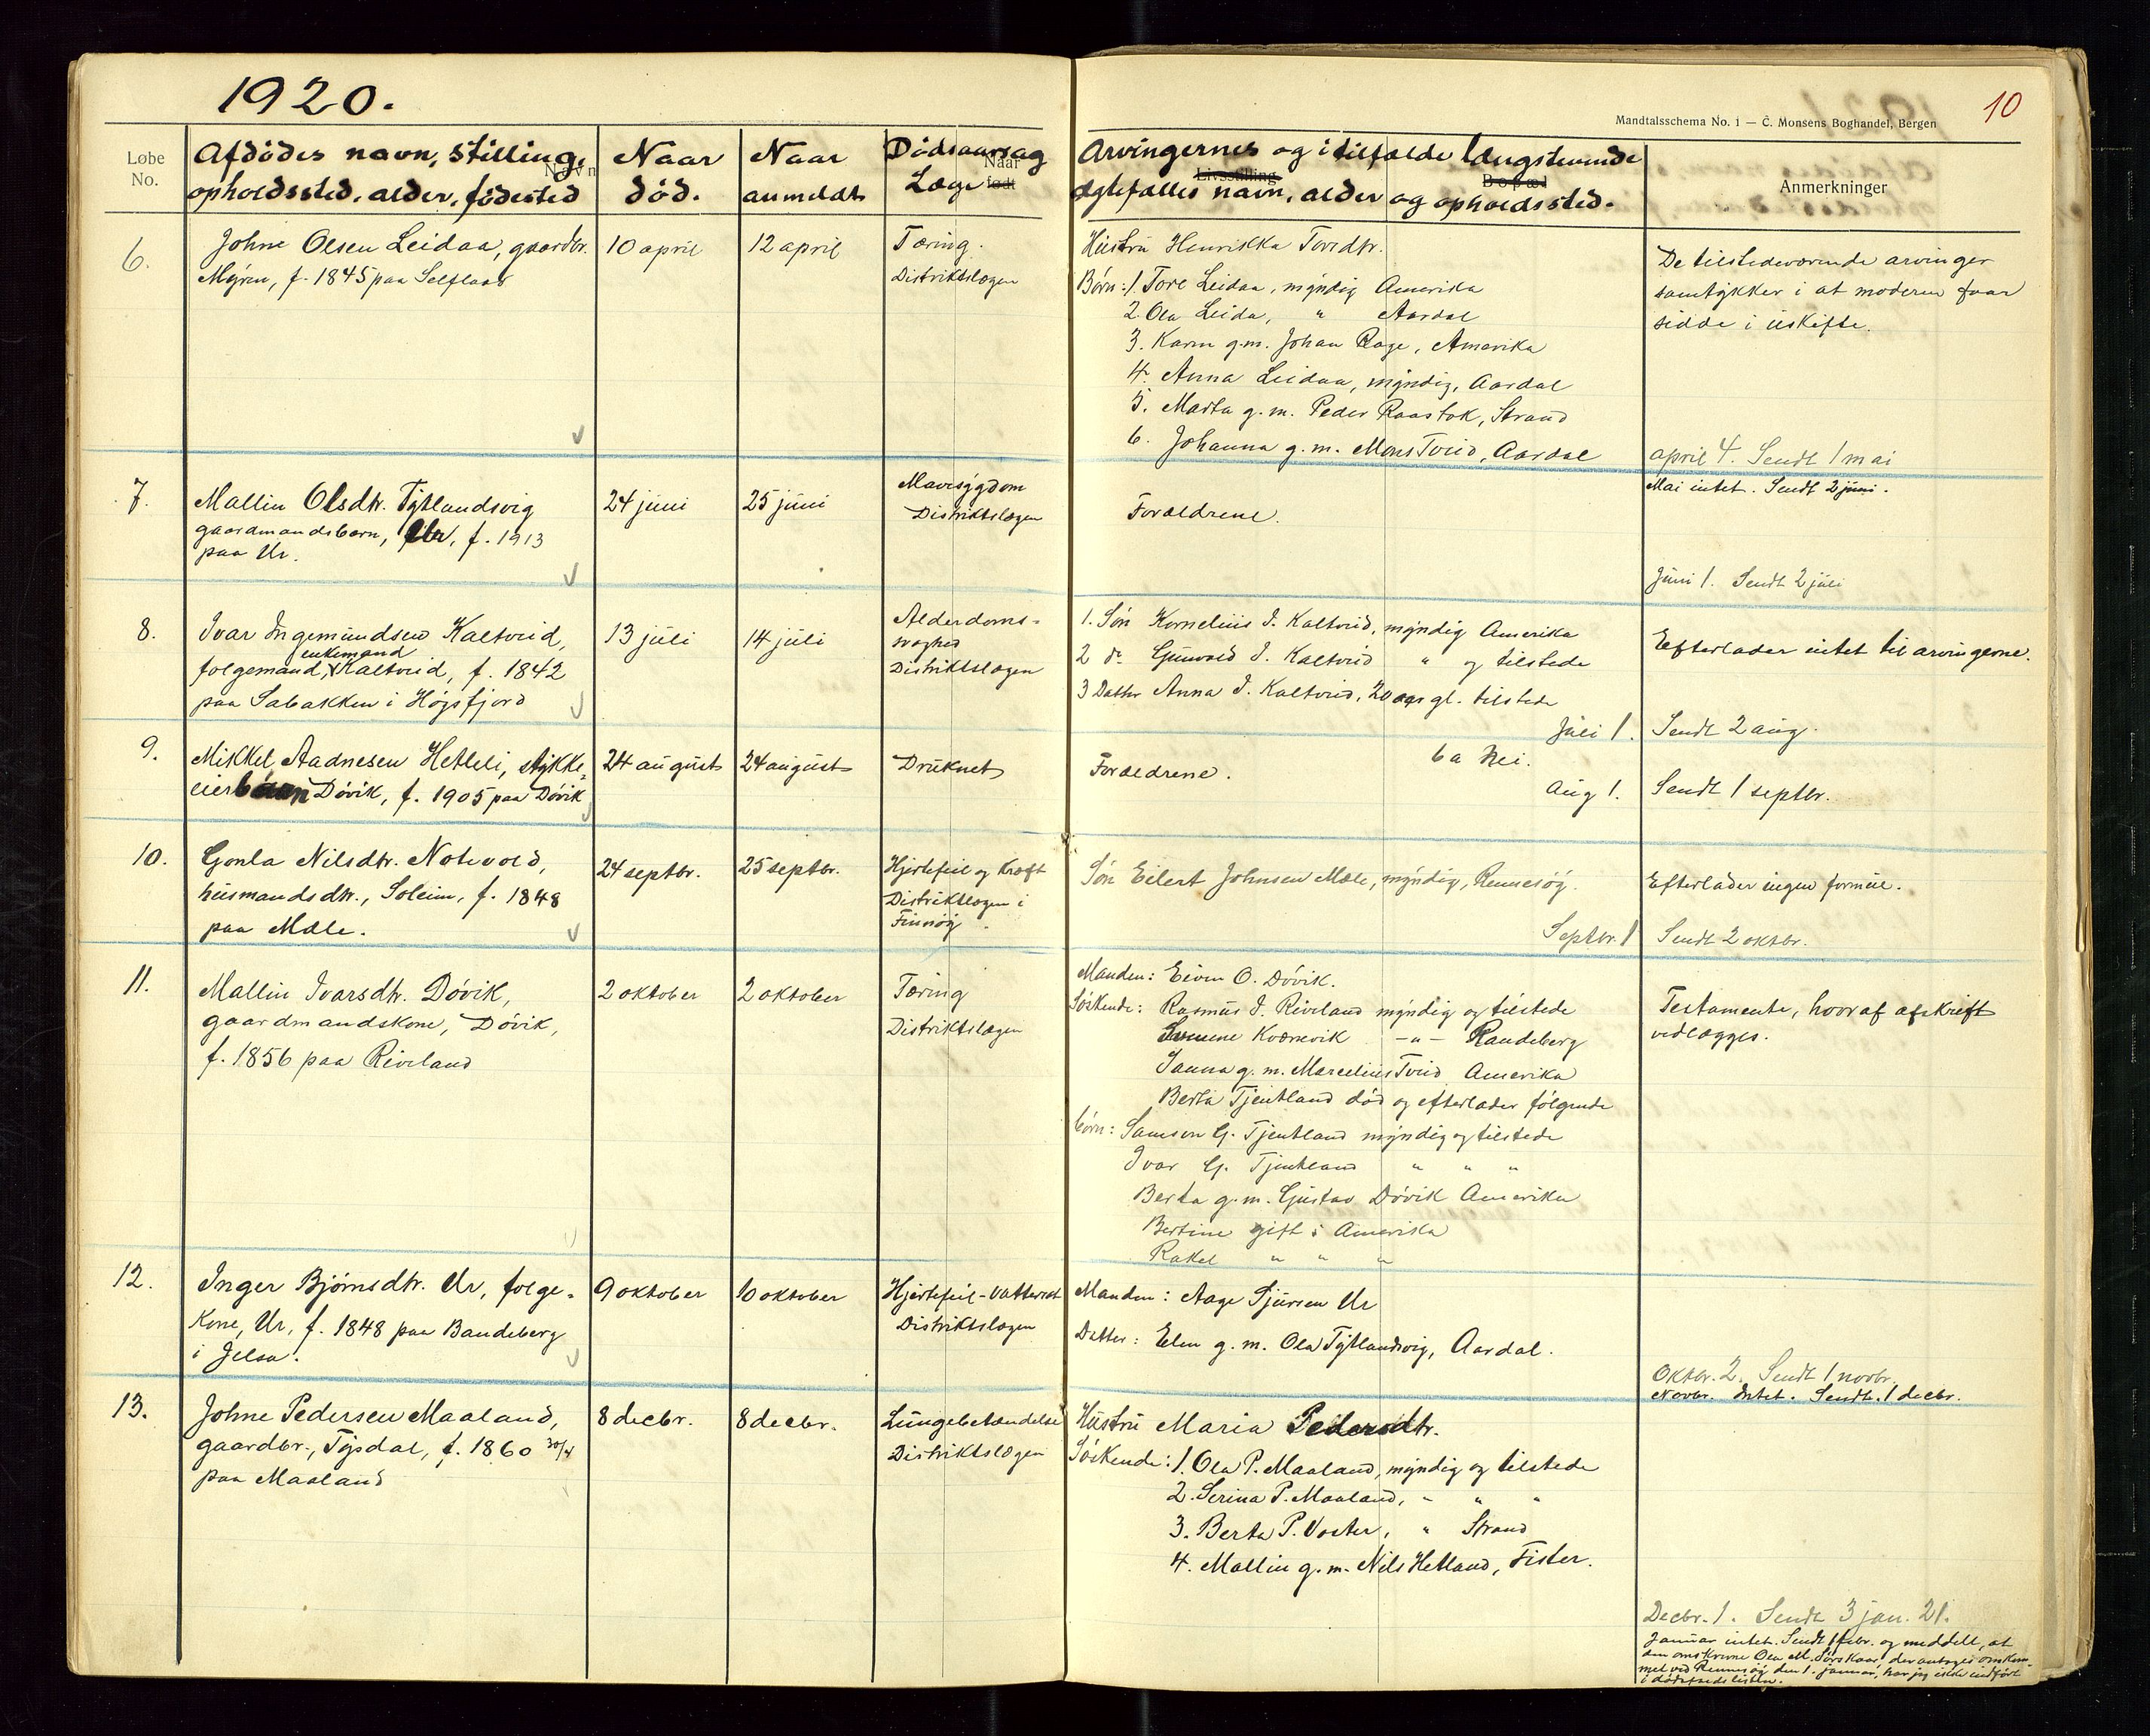 1920.
10
Mandtalsschema No. 1 — C. Monsens Boghandel, Bergen
Løbe No.
Afdødes navn, stilling, opholdssted, alder, fødested
Navn
Naar død.
Naar anmeldt
Dødsaarsag Læge
Naar født
Arvingernes og i tilfælde længstlevende
ægtefælles navn, alder og opholdssted.
Livsstilling
Bopæl
Anmerkninger
6.
Johne Olsen Leidaa, gaardbr.
Myren, f. 1845 paa Selflaat
10 april
12 april
Tæring.
Distriktslægen
Hustru Henrikka Toredtr.
Børn: 1. Tore Leidaa, myndig Amerika
2. Ola Leida, " Aardal
3. Karen g.m. Johan Rage, Amerika
4. Anna Leidaa, myndig, Aardal
5. Marta g.m. Peder Raastok, Strand
6. Johanna g.m. Mons Tveid, Aardal
De tilstedeværende arvinger
samtykker i at moderen faar
sidde i uskifte.
april 4. Sendt 1 mai
Mai intet. Sendt 2 juni.
7.
Mallin Olsdtr. Tytlandsvig
gaardmandsbarn, Ur, f. 1913
paa Ur.
24 juni
25 juni
Mavesygdom
Distriktslægen
Forældrene.
Juni 1. Sendt 2 juli
8.
Ivar Ingemundsen Kaltveid,
enkemand
folgemand, Kaltveid, f. 1842
paa Sabakken i Høgsfjord
13 juli
14 juli
Alderdoms-
svaghed
Distriktslægen
1. Søn Kornelius I. Kaltveid, myndig Amerika
2 do Gunvald I. Kaltveid " og tilstede
3 Datter Anna I. Kaltveid, 20 aar gl. tilstede
Efterlader intet til arvingerne.
Juli 1. Sendt 2 aug.
9.
Mikkel Aadnesen Hetleli, stykke-
eierbarn Døvik, f. 1905 paa Døvik
24 august
24 august
Druknet
Forældrene.
6 a Nei.
Aug 1. Sendt 1 septbr.
10.
Gonla Nilsdtr. Notevold,
husmandsdtr., Soleim, f. 1848
paa Mæle.
24 septbr.
25 septbr.
Hjertefeil og Kræft
Distriktslægen i
Finnøy
Søn Eilert Johnsen Mæle, myndig, Rennesøy.
Efterlader ingen formue.
Septbr. 1 Sendt 2 oktbr.
11.
Mallin Ivarsdtr. Døvik,
gaardmandskone, Døvik,
f. 1856 paa Riveland
2 oktober
2 oktober
Tæring
Distriktslægen
Manden: Eiven O. Døvik.
Søskende: Rasmus I. Riveland myndig og tilstede
Kværnevik -"- Randeberg
Janna g.m. Marcelius Tveid Amerika
Berta Tjentland død og efterlader følgende
børn: Samson G. Tjentland myndig og tilstede
Ivar G. Tjentland " " "
Berta g.m. Gustav Døvik Amerika
Bertine gift i Amerika
Rakel " " "
Testamente, hvoraf afskrift
vedlægges.
12.
Inger Bjørnsdtr. Ur, folge-
kone, Ur, f. 1848 paa Bandeberg
i Jelsa.
9 oktober
10 oktober
Hjertefeil - Vattersot
Distriktslægen
Manden: Aage Sjursen Ur
Datter: Elen g.m. Ola Tytlandsvig, Aardal.
Oktbr. 2. Sendt 1 novbr.
Novbr. Intet. Sendt 1 decbr.
13.
Johne Pedersen Maaland,
gaardbr., Tysdal, f. 1860 30/4
paa Maaland
8 decbr.
8 decbr.
Lungebetændelse
Distriktslægen
Hustru Maria Pedersdtr.
Søskende: 1. Ola P. Maaland, myndig og tilstede
2. Serina P. Maaland, " " "
3. Berta P. Voster, " Strand
4. Mallin g.m. Nils Hetland, Fister.
Decbr. 1. Sendt 3 jan. 21.
Januar intet. Sendt 1 febr. og meddelt, at
den omskrevne Ola M. Sørskaar, der antages omkom-
met ved Rennesøy den 1. januar, har jeg ikke indført
i dødsfaldslisten.